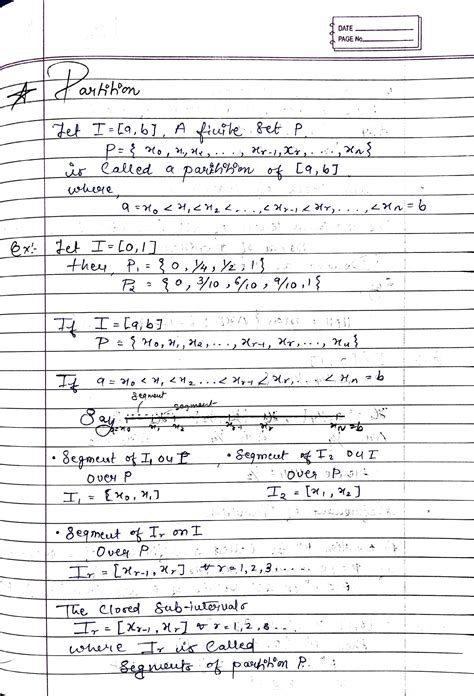 DATE
PAGE No.
Partition
Let I = [a, b], A finite set P
P = { x0, x1, x2, ..., xr-1, xr, ..., xn}
is called a partition of [a, b]
where,
a = x0 < x1 < x2 < ..., < xr-1 < xr, ..., < xn = b
Ex:- Let I = [0, 1]
then, P1 = { 0, 1/4, 1/2, 1}
P2 = { 0, 3/10, 6/10, 9/10, 1}
If I = [a, b]
P = { x0, x1, x2, ..., xr-1, xr, ..., xn}
If a = x0 < x1 < x2 ... < xr-1 < xr, ... < xn = b
Segment
segment
Say
a=x0 x1 x2 xr-1 xr xn=b
• Segment of I1 on I • Segment of I2 on I
over P over P
I1 = [x0, x1] I2 = [x1, x2]
• Segment of Ir on I
Over P
Ir = [xr-1, xr] ∀ r = 1, 2, 3, ...
The Closed Sub-intervals
Ir = [xr-1, xr] ∀ r = 1, 2, 3..
where Ir is Called
Segments of partition P.